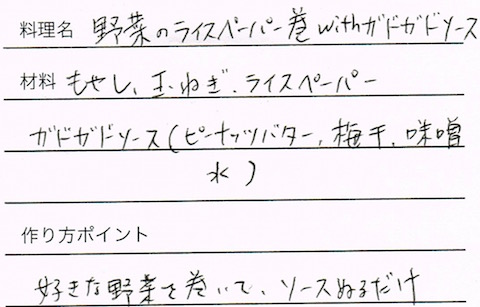 料理名 野菜のライスペーパー巻withガドガドソース
材料 もやし、玉ねぎ、ライスペーパー
ガドガドソース(ピーナッツバター、梅干、味噌
水)
作り方ポイント
好きな野菜を巻いて、ソースぬるだけ